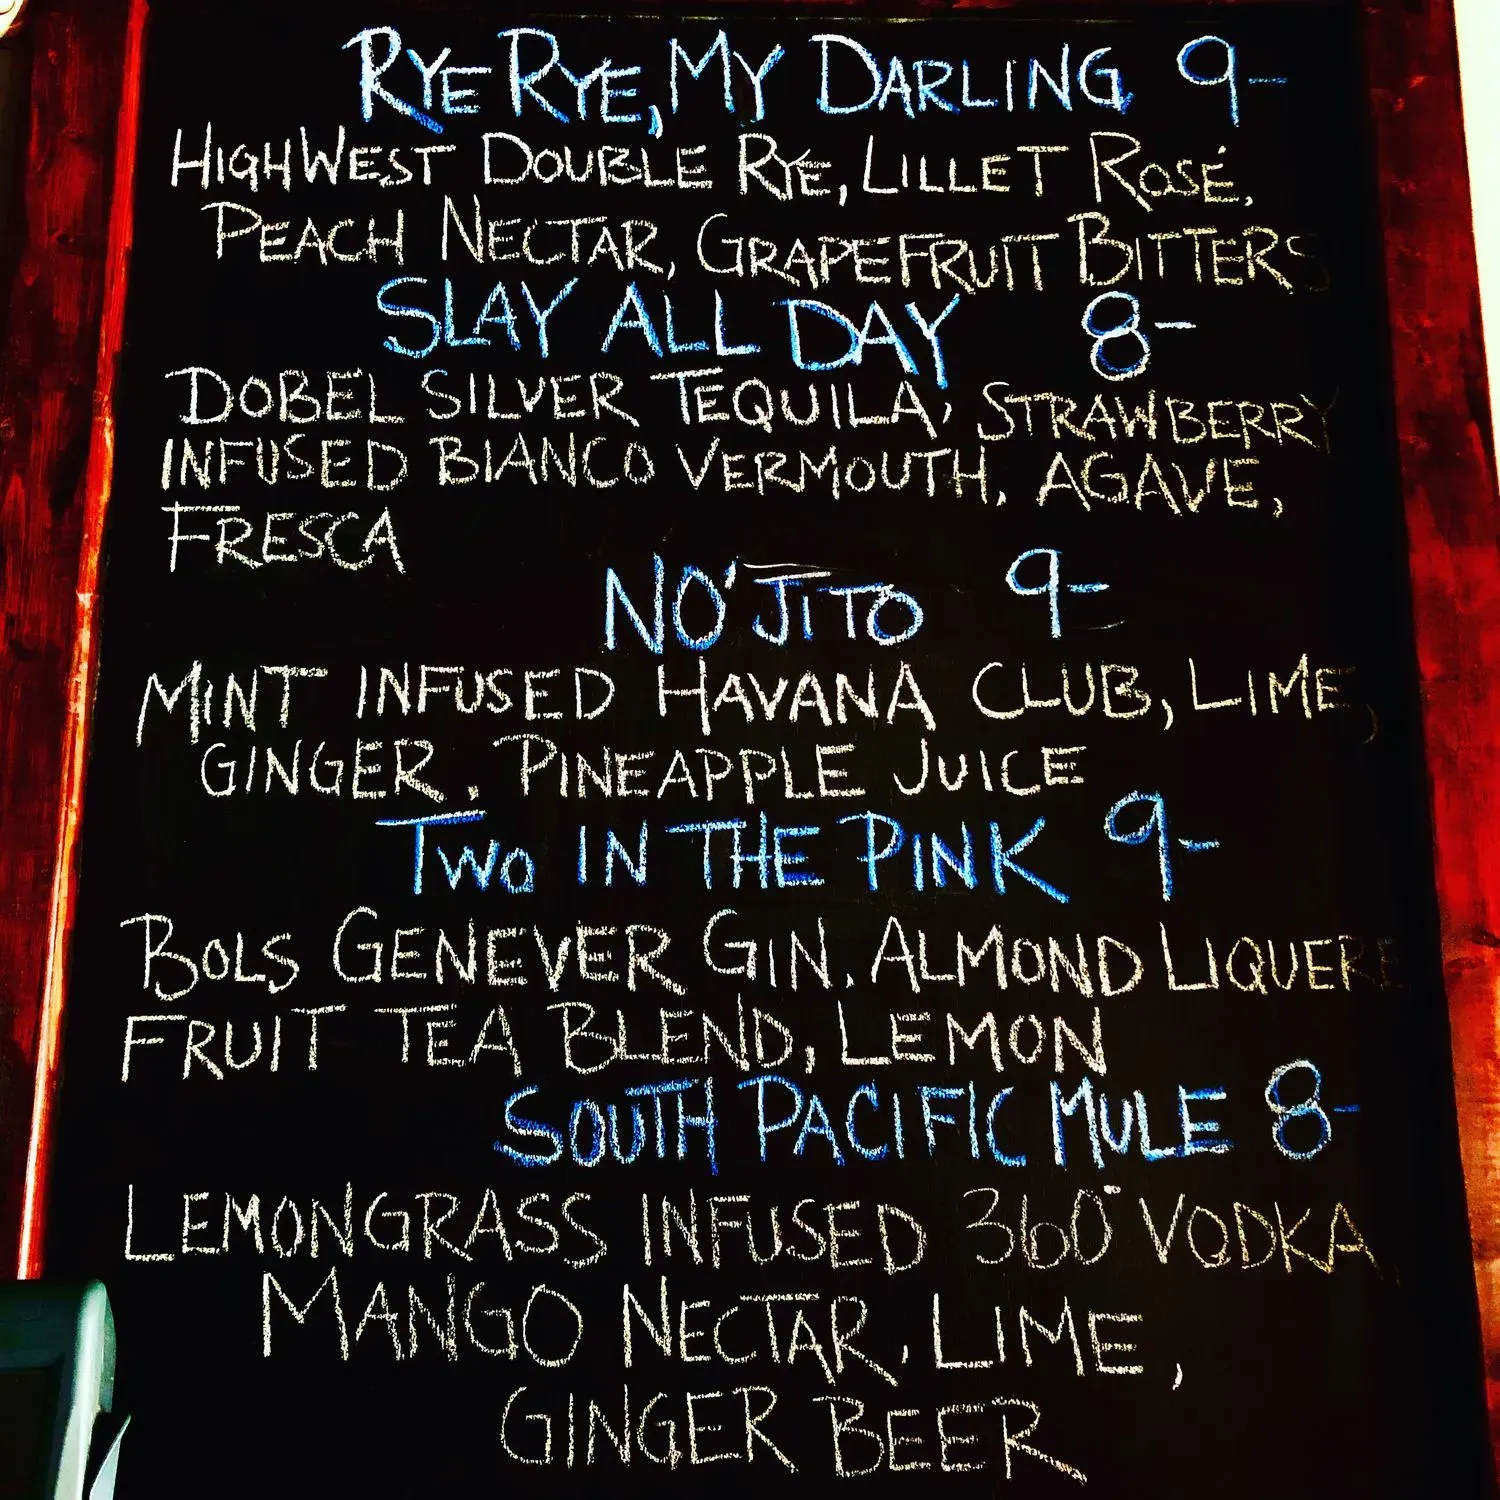 RYE RYE, MY DARLING 9-
HIGHWEST DOUBLE RYE, LILLET ROSÉ,
PEACH NECTAR, GRAPEFRUIT BITTERS
SLAY ALL DAY 8-
DOBEL SILVER TEQUILA, STRAWBERRY
INFUSED BIANCO VERMOUTH, AGAVE,
FRESCA
NO'JITO 9-
MINT INFUSED HAVANA CLUB, LIME,
GINGER, PINEAPPLE JUICE
TWO IN THE PINK 9-
BOLS GENEVER GIN, ALMOND LIQUERE
FRUIT TEA BLEND, LEMON
SOUTH PACIFIC MULE 8-
LEMONGRASS INFUSED 360° VODKA,
MANGO NECTAR, LIME,
GINGER BEER